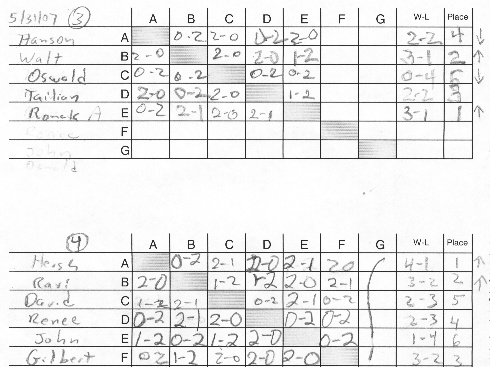 5/31/07 ③ A B C D E F G W-L Place
Hanson A 0-2 2-0 0-2 2-0 2-2 4 ↓
Walt B 2-0 2-0 2-0 1-2 3-1 2 ↑
Oswald C 0-2 0-2 0-2 0-2 0-4 5 ↓
D 2-0 0-2 2-0 1-2 2-2 3
Ronak A E 0-2 2-1 2-0 2-1 3-1 1 ↑
F
G
④ A B C D E F G W-L Place
Hersh A 0-2 2-1 2-0 2-1 20 4-1 1 ↑
Ravi B 2-0 1-2 1-2 2-0 2-1 3-2 2 ↑
David C 1-2 2-1 0-2 2-1 0-2 2-3 5
Renee D 0-2 2-1 2-0 0-2 0-2 2-3 4
John E 1-2 0-2 1-2 2-0 0-2 1-4 6
Gilbert F 02 1-2 2-0 2-0 2-0 3-2 3